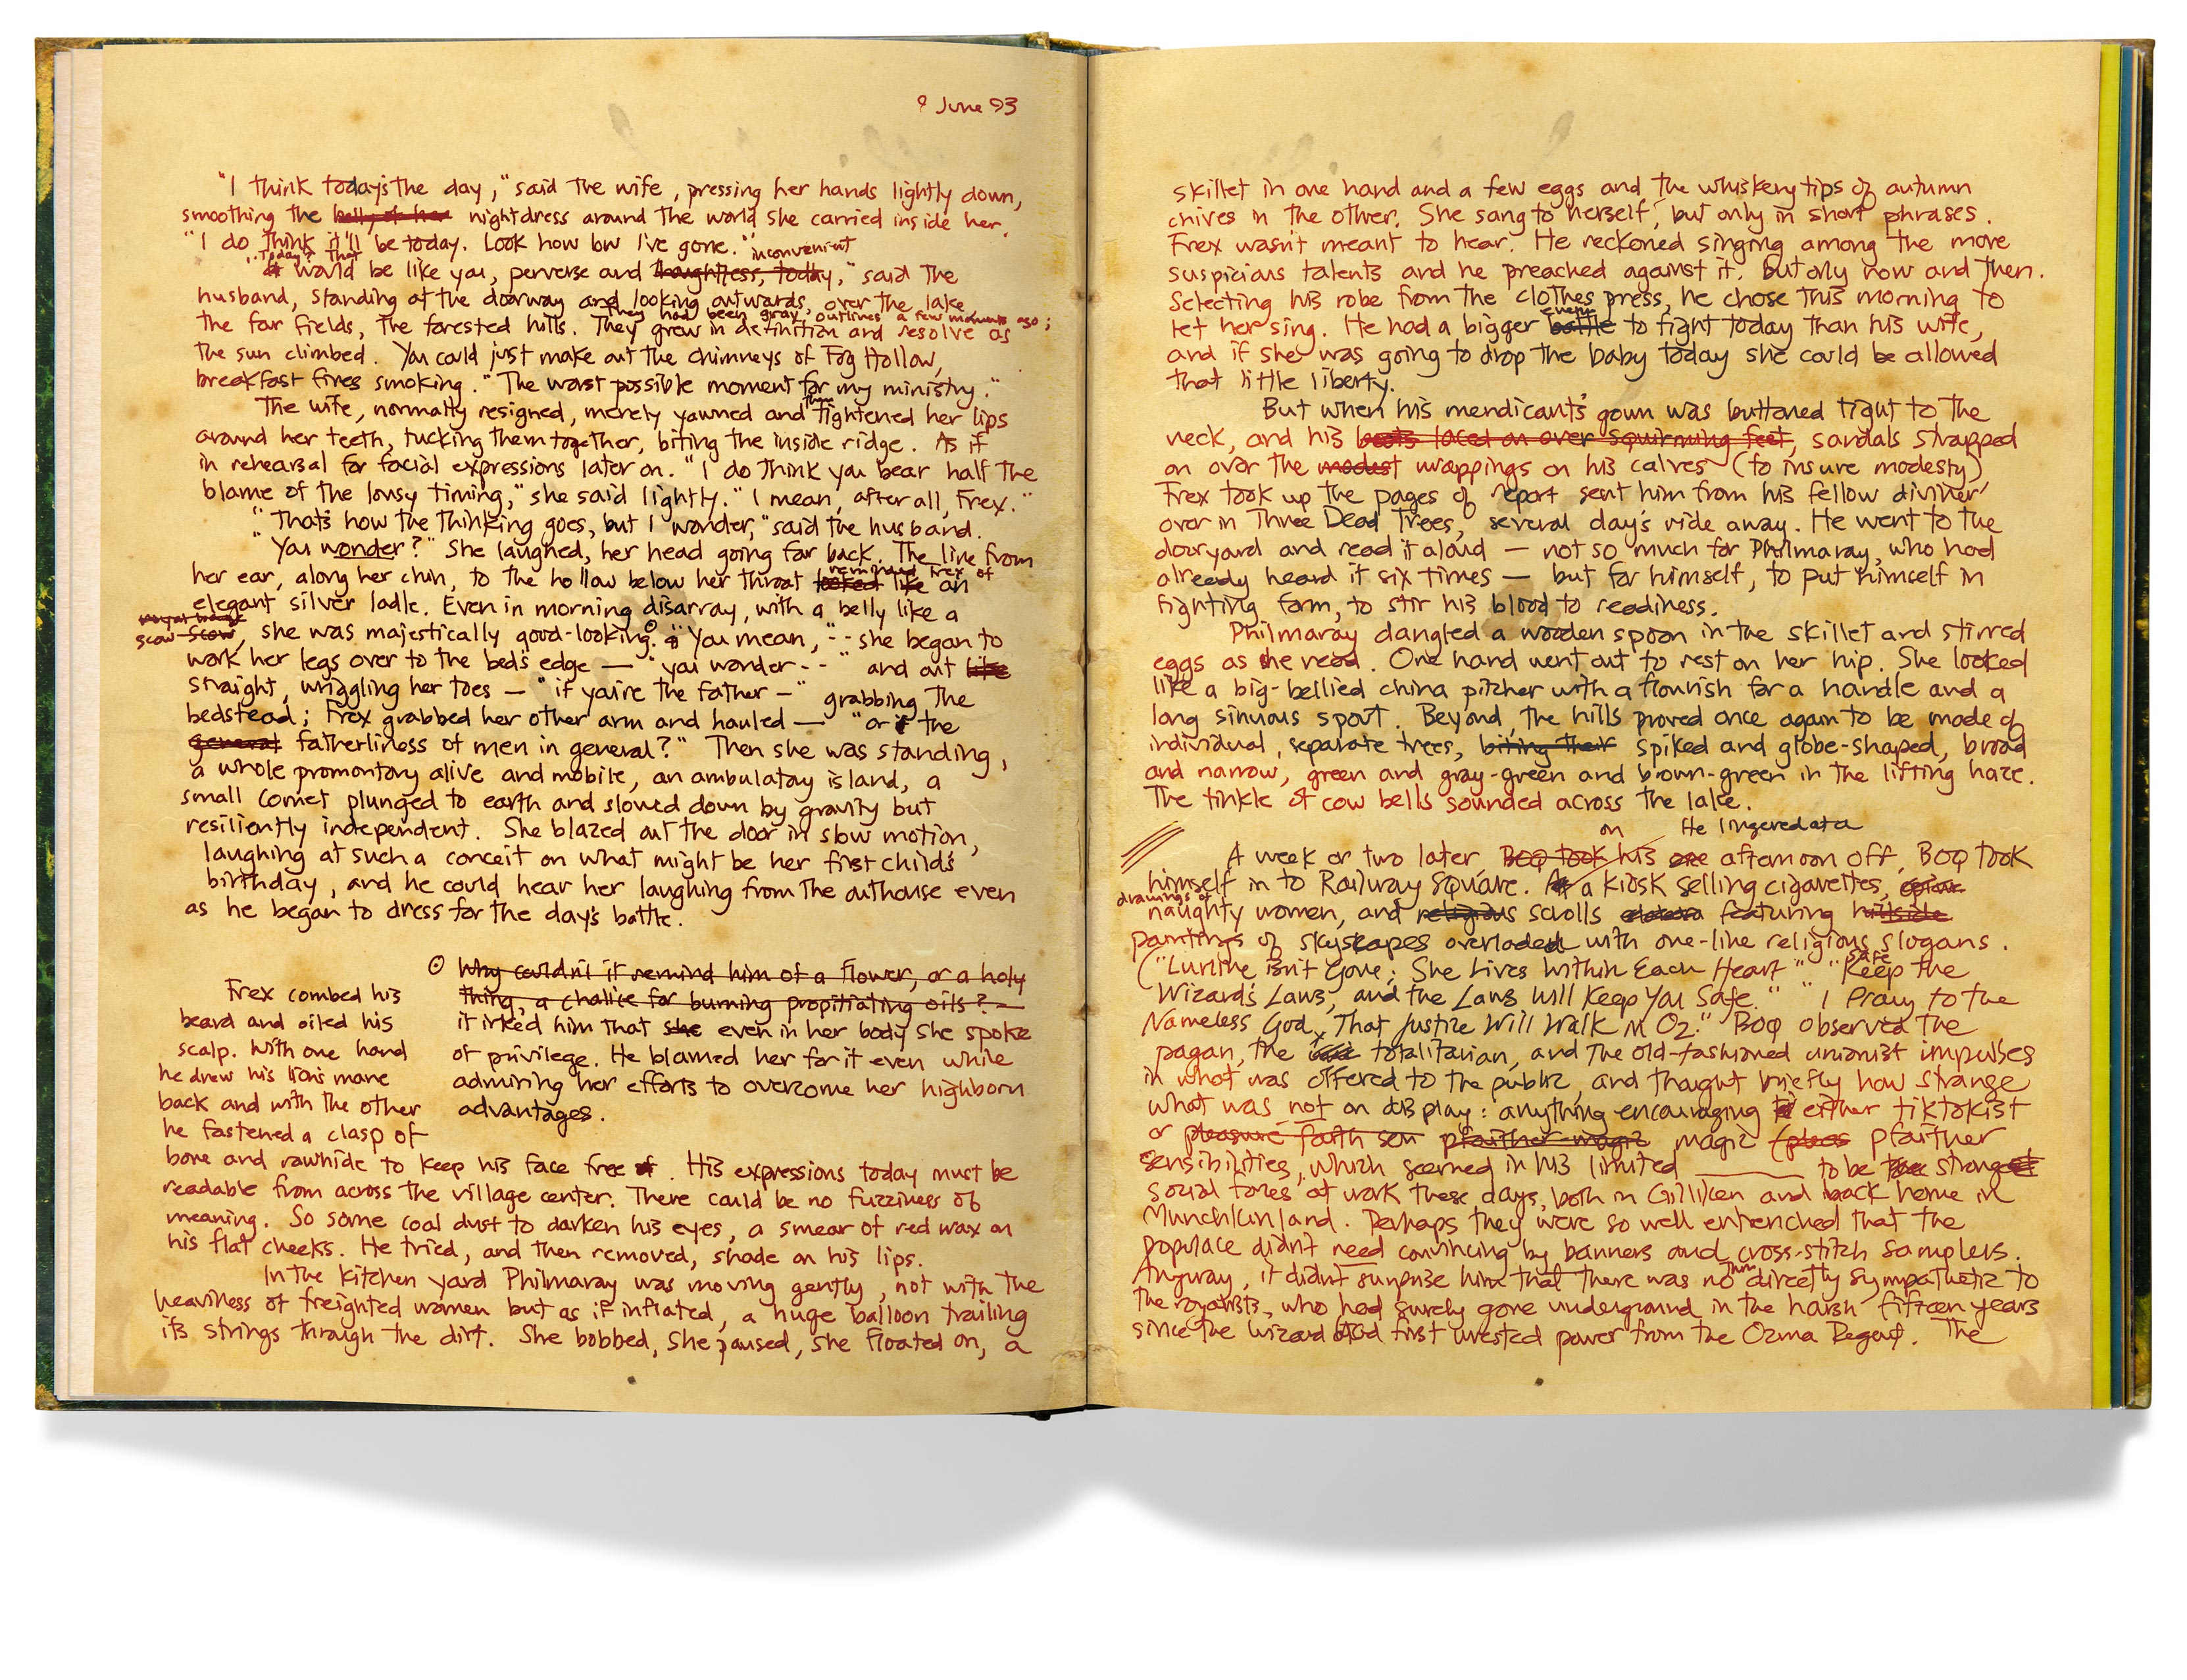 9 June 93
"I think today's the day," said the wife, pressing her hands lightly down,
smoothing the belly of her nightdress around the world she carried inside her.
"I do think it'll be today. Look how low I've gone."
"Today? That inconvenient
It would be like you, perverse and thoughtless, today," said the
husband, standing at the doorway and looking outwards, over the lake,
they had been gray outlines a few moments ago;
the far fields, the forested hills. They grew in definition and resolve as
the sun climbed. You could just make out the chimneys of Fog Hollow,
breakfast fires smoking. "The worst possible moment for my ministry."
The wife, normally resigned, merely yawned and then tightened her lips
around her teeth, tucking them together, biting the inside ridge. As if
in rehearsal for facial expressions later on. "I do think you bear half the
blame of the lousy timing," she said lightly. "I mean, after all, Frex."
"That's how the thinking goes, but I wonder," said the husband.
"You wonder?" She laughed, her head going far back. The line from
reminded Frex of
her ear, along her chin, to the hollow below her throat looked like an
elegant silver ladle. Even in morning disarray, with a belly like a
scow scow, she was majestically good-looking. "You mean," -- she began to
work her legs over to the bed's edge — "you wonder --" and out like
straight, wriggling her toes — "if you're the father —" grabbing the
bedstead; Frex grabbed her other arm and hauled — "or the
general fatherliness of men in general?" Then she was standing,
a whole promontory alive and mobile, an ambulatory island, a
small comet plunged to earth and slowed down by gravity but
resiliently independent. She blazed out the door in slow motion,
laughing at such a conceit on what might be her first child's
birthday, and he could hear her laughing from the outhouse even
as he began to dress for the day's battle.
Why couldn't it remind him of a flower, or a holy
thing, a chalice for burning propitiating oils? —
it irked him that she even in her body she spoke
of privilege. He blamed her for it even while
admiring her efforts to overcome her highborn
advantages.
Frex combed his
beard and oiled his
scalp. With one hand
he drew his lion's mane
back and with the other
he fastened a clasp of
bone and rawhide to keep his face free of. His expressions today must be
readable from across the village center. There could be no fuzziness of
meaning. So some coal dust to darken his eyes, a smear of red wax on
his flat cheeks. He tried, and then removed, shade on his lips.
In the kitchen yard Philmaray was moving gently, not with the
heaviness of freighted women but as if inflated, a huge balloon trailing
its strings through the dirt. She bobbed, she paused, she floated on, a
skillet in one hand and a few eggs and the whiskery tips of autumn
chives in the other. She sang to herself, but only in short phrases.
Frex wasn't meant to hear. He reckoned singing among the more
suspicious talents and he preached against it. But only now and then.
Selecting his robe from the clothes press, he chose this morning to
let her sing. He had a bigger battle enemy to fight today than his wife,
and if she was going to drop the baby today she could be allowed
that little liberty.
But when his mendicant's gown was buttoned tight to the
neck, and his boots laced on over squirming feet, sandals strapped
on over the modest wrappings on his calves (to insure modesty)
Frex took up the pages of report sent him from his fellow diviner
over in Three Dead Trees, several day's ride away. He went to the
dooryard and read it aloud — not so much for Philmaray, who had
already heard it six times — but for himself, to put himself in
fighting form, to stir his blood to readiness.
Philmaray dangled a wooden spoon in the skillet and stirred
eggs as he read. One hand went out to rest on her hip. She looked
like a big-bellied china pitcher with a flourish for a handle and a
long sinuous spout. Beyond, the hills proved once again to be made of
individual, separate trees, biting their spiked and globe-shaped, broad
and narrow, green and gray-green and brown-green in the lifting haze.
The tinkle of cow bells sounded across the lake.
on He lingered at a
A week or two later Boq took his one afternoon off, Boq took
himself in to Railway Square. At a kiosk selling cigarettes,
drawings of
naughty women, and religious scrolls featuring hillside
paintings of skyscapes overloaded with one-line religious slogans.
("Lurline isn't Gone; She Lives Within Each Heart" "Safe Keep the
Wizard's Laws, and the Laws Will Keep You Safe." "I Pray to the
Nameless God, That Justice Will Walk in Oz." Boq observed the
pagan, the totalitarian, and the old-fashioned unionist impulses
in what was offered to the public, and thought briefly how strange
what was not on display: anything encouraging to either tiktokist
or pleasure faith sen pfaither magic magic (pleas pfaither
sensibilities, which seemed in his limited ____ to be strongest
social forces at work these days, both in Gillikin and back home in
Munchkinland. Perhaps they were so well entrenched that the
populace didn't need convincing by banners and cross-stitch samplers.
Anyway, it didn't surprise him that there was no directly sympathetic to
the royalists, who had surely gone underground in the harsh fifteen years
since the Wizard had first wrested power from the Ozma Regent. The